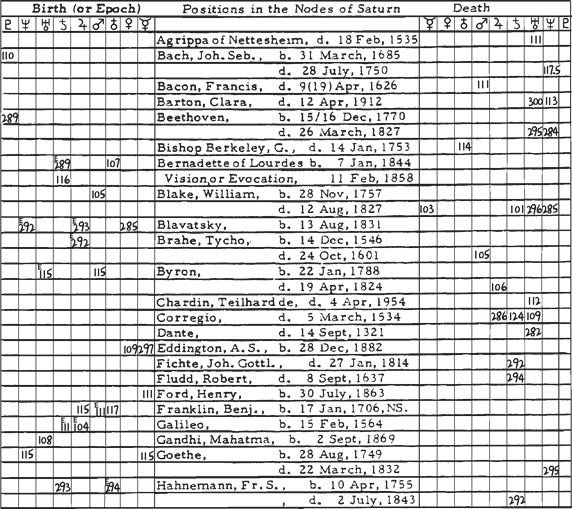 Birth (or Epoch) Positions in the Nodes of Saturn Death
♇ ♆ ♅ ♄ ♃ ♂ ♁ ♀ ☿ ☿ ♀ ♁ ♂ ♃ ♄ ♅ ♆ ♇
Agrippa of Nettesheim, d. 18 Feb, 1535 111
110 Bach, Joh. Seb., b. 31 March, 1685
d. 28 July, 1750 117.5
Bacon, Francis, d. 9(19) Apr, 1626 111
Barton, Clara, d. 12 Apr, 1912 300 113
289 Beethoven, b. 15/16 Dec, 1770
d. 26 March, 1827 295 284
Bishop Berkeley, G., d. 14 Jan, 1753 114
E289 107 Bernadette of Lourdes b. 7 Jan, 1844
116 Vision, or Evocation, 11 Feb, 1858
105 Blake, William, b. 28 Nov, 1757
d. 12 Aug, 1827 103 101 296 285
E292 E293 285 Blavatsky, b. 13 Aug, 1831
E292 Brahe, Tycho, b. 14 Dec, 1546
d. 24 Oct, 1601 105
E115 115 Byron, b. 22 Jan, 1788
d. 19 Apr, 1824 106
Chardin, Teilhard de, d. 4 Apr, 1954 112
Corregio, d. 5 March, 1534 286 124 109
Dante, d. 14 Sept, 1321 282
109 297 Eddington, A. S., b. 28 Dec, 1882
Fichte, Joh. Gottl., d. 27 Jan, 1814 292
Fludd, Robert, d. 8 Sept, 1637 294
111 Ford, Henry, b. 30 July, 1863
115 E111 117 Franklin, Benj., b. 17 Jan, 1706, NS.
E111 E104 Galileo, b. 15 Feb, 1564
108 Gandhi, Mahatma, b. 2 Sept, 1869
115 115 Goethe, b. 28 Aug, 1749
d. 22 March, 1832 295
293 E294 Hahnemann, Fr. S., b. 10 Apr, 1755
, d. 2 July, 1843 292